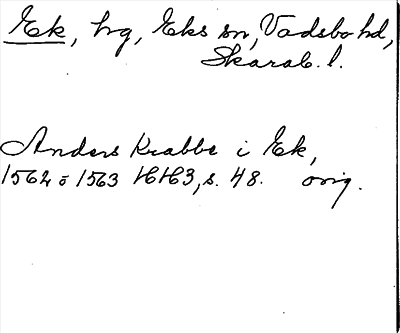 Ek, hg, Eks sn, Vadsbo hd,
Skarab. l.
Anders Krabbe i Ek,
1562 o 1563 HH3, s. 48. orig.